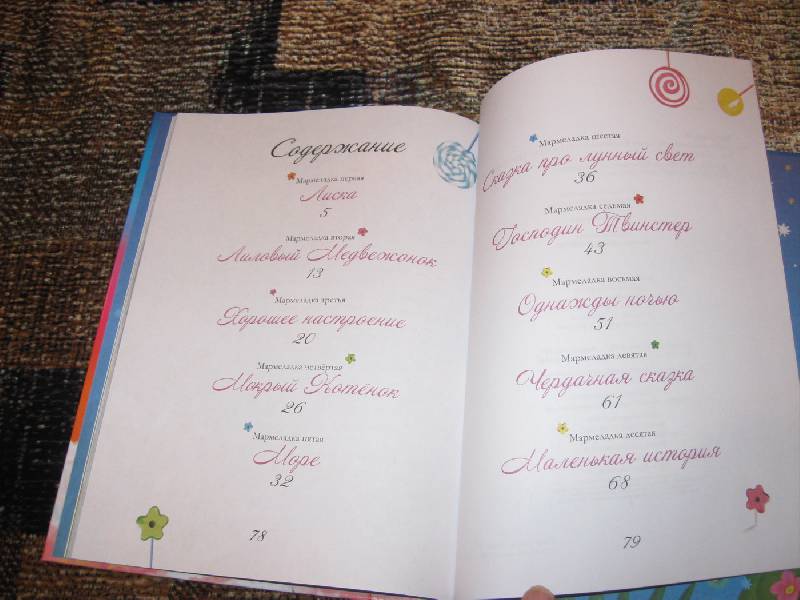 Содержание
Мармеладка первая
Лиска
5
Мармеладка вторая
Лиловый Медвежонок
13
Мармеладка третья
Хорошее настроение
20
Мармеладка четвёртая
Мокрый Котёнок
26
Мармеладка пятая
Море
32
78
Мармеладка шестая
Сказка про лунный свет
36
Мармеладка седьмая
Господин Твинстер
43
Мармеладка восьмая
Однажды ночью
51
Мармеладка девятая
Чердачная сказка
61
Мармеладка десятая
Маленькая история
68
79